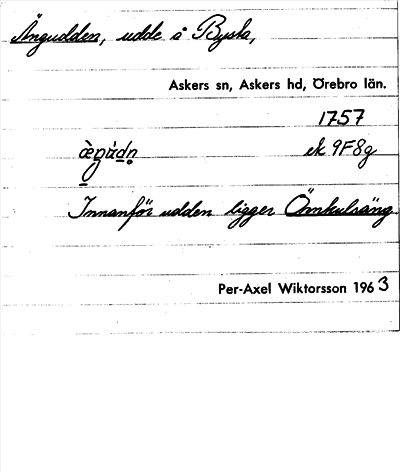 Ängudden, udde å Bysta,
Askers sn, Askers hd, Örebro län.
1757
ek 9F8g
Innanför udden ligger Ömkulsäng.
Per-Axel Wiktorsson 1963